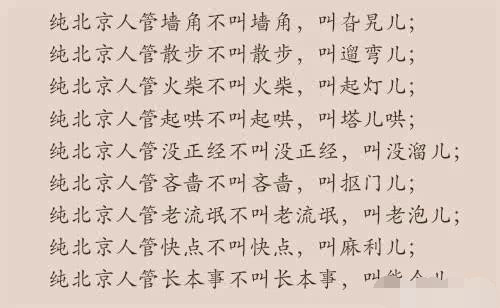 纯北京人管墙角不叫墙角，叫旮旯儿；
纯北京人管散步不叫散步，叫遛弯儿；
纯北京人管火柴不叫火柴，叫起灯儿；
纯北京人管起哄不叫起哄，叫塔儿哄；
纯北京人管没正经不叫没正经，叫没溜儿；
纯北京人管吝啬不叫吝啬，叫抠门儿；
纯北京人管老流氓不叫老流氓，叫老泡儿；
纯北京人管快点不叫快点，叫麻利儿；
纯北京人管长本事不叫长本事，叫能